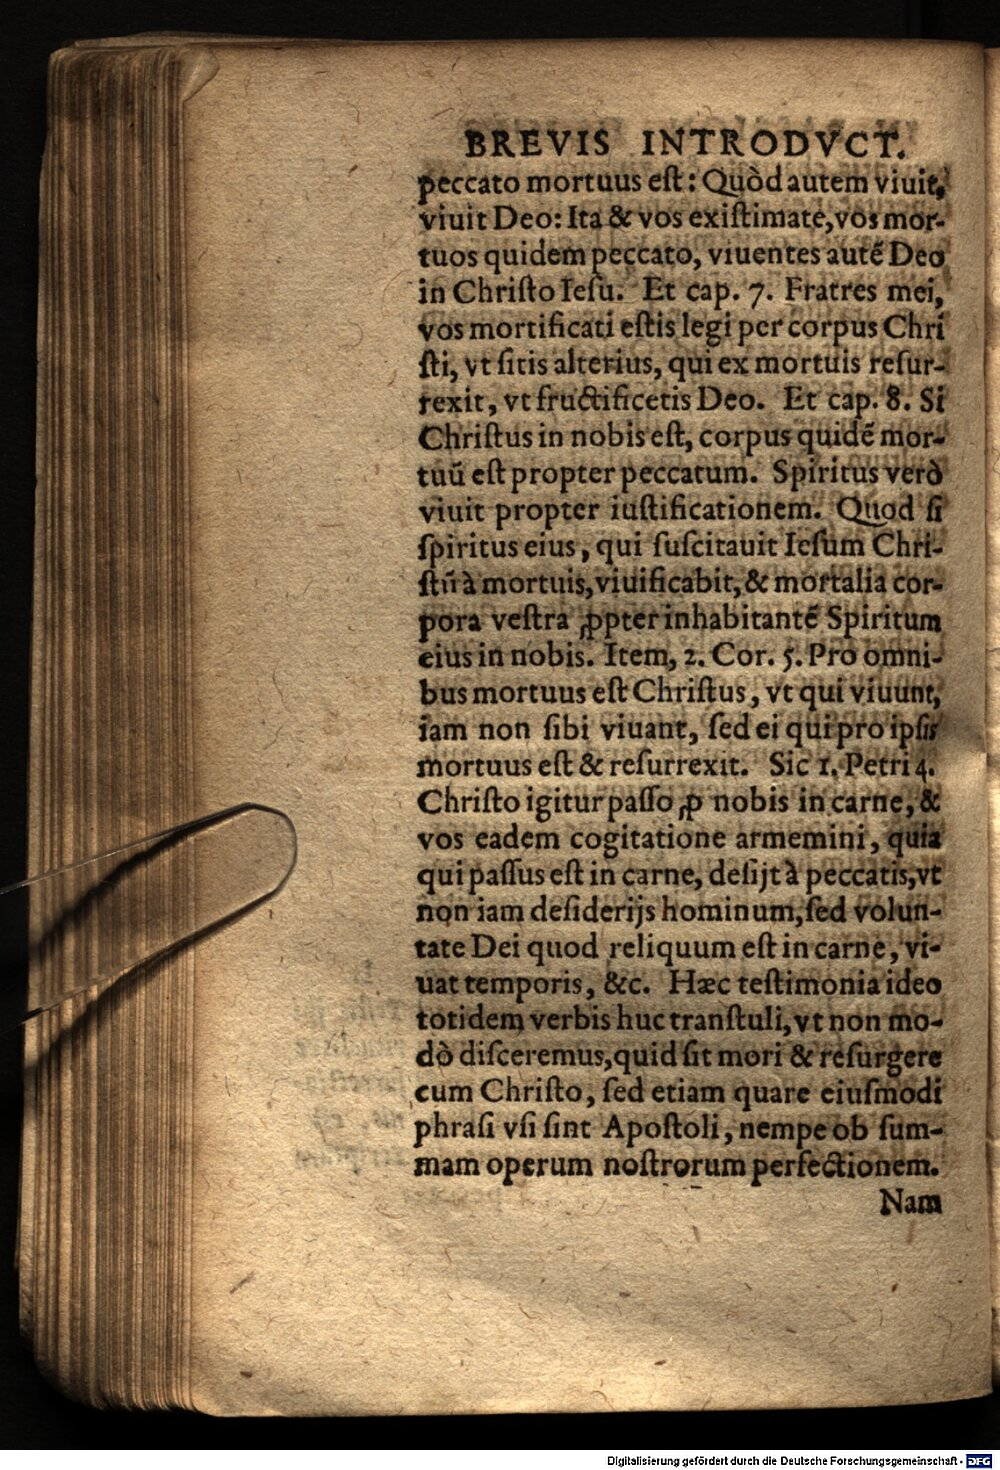 BREVIS INTRODVCT.
peccato mortuus eſt: Quòd autem viuit,
viuit Deo: Ita & vos exiſtimate, vos mor-
tuos quidem peccato, viuentes autẽ Deo
in Chriſto Ieſu. Et cap. 7. Fratres mei,
vos mortificati eſtis legi per corpus Chri
ſti, vt ſitis alterius, qui ex mortuis reſur-
rexit, vt fructificetis Deo. Et cap. 8. Si
Chriſtus in nobis eſt, corpus quidẽ mor-
tuũ eſt propter peccatum. Spiritus verò
viuit propter iuſtificationem. Quod ſi
ſpiritus eius, qui ſuſcitauit Ieſum Chri-
ſtũ à mortuis, viuificabit, & mortalia cor-
pora veſtra ꝓpter inhabitantẽ Spiritum
eius in nobis. Item, 2. Cor. 5. Pro omni-
bus mortuus eſt Chriſtus, vt qui viuunt,
iam non ſibi viuant, ſed ei qui pro ipſis
mortuus eſt & reſurrexit. Sic 1. Petri 4.
Chriſto igitur paſſo ꝓ nobis in carne, &
vos eadem cogitatione armemini, quia
qui paſſus eſt in carne, deſijt à peccatis, vt
non iam deſiderijs hominum, ſed volun-
tate Dei quod reliquum eſt in carne, vi-
uat temporis, &c. Hæc teſtimonia ideo
totidem verbis huc tranſtuli, vt non mo-
dò diſceremus, quid ſit mori & reſurgere
cum Chriſto, ſed etiam quare eiuſmodi
phraſi vſi ſint Apoſtoli, nempe ob ſum-
mam operum noſtrorum perfectionem.
Nam
Digitalisierung gefördert durch die Deutsche Forschungsgemeinschaft - DFG